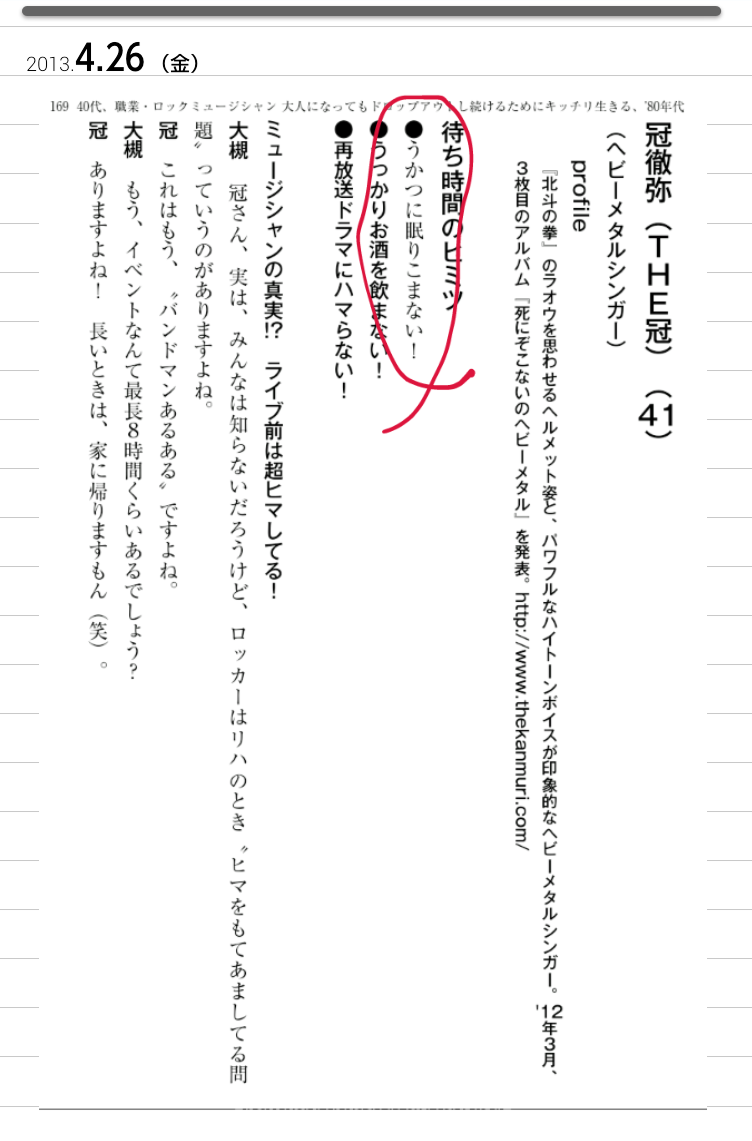 2013.4.26（金）
169 40代、職業・ロックミュージシャン 大人になってもドロップアウトし続けるためにキッチリ生きる、'80年代
冠徹弥（ＴＨＥ冠）（41）
（ヘビーメタルシンガー）
profile
『北斗の拳』のラオウを思わせるヘルメット姿と、パワフルなハイトーンボイスが印象的なヘビーメタルシンガー。'12年3月、
3枚目のアルバム『死にぞこないのヘビーメタル』を発表。http://www.thekanmuri.com/
待ち時間のヒミツ
●うかつに眠りこまない！
●うっかりお酒を飲まない！
●再放送ドラマにハマらない！
ミュージシャンの真実!?　ライブ前は超ヒマしてる！
大槻　冠さん、実は、みんなは知らないだろうけど、ロッカーはリハのとき〝ヒマをもてあましてる問
題〟っていうのがありますよね。
冠　これはもう、〝バンドマンあるある〟ですよね。
大槻　もう、イベントなんて最長8時間くらいあるでしょう？
冠　ありますよね！　長いときは、家に帰りますもん（笑）。